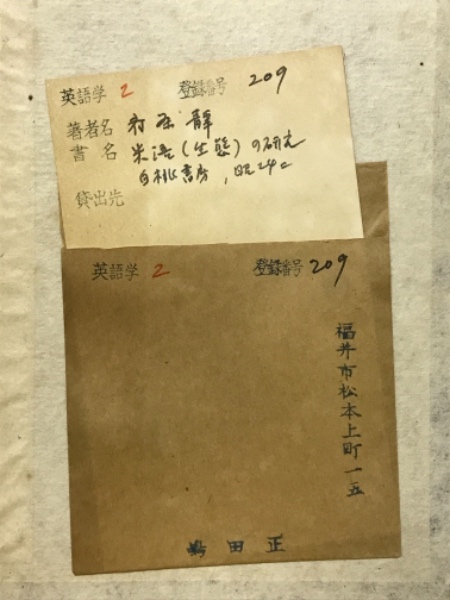 英語学 2 登録番号 209
著者名 静
書名 米語(生態)の研究
白桃書房,昭24
貸出先
英語学 2 登録番号 209
福井市松本上町一五
田正